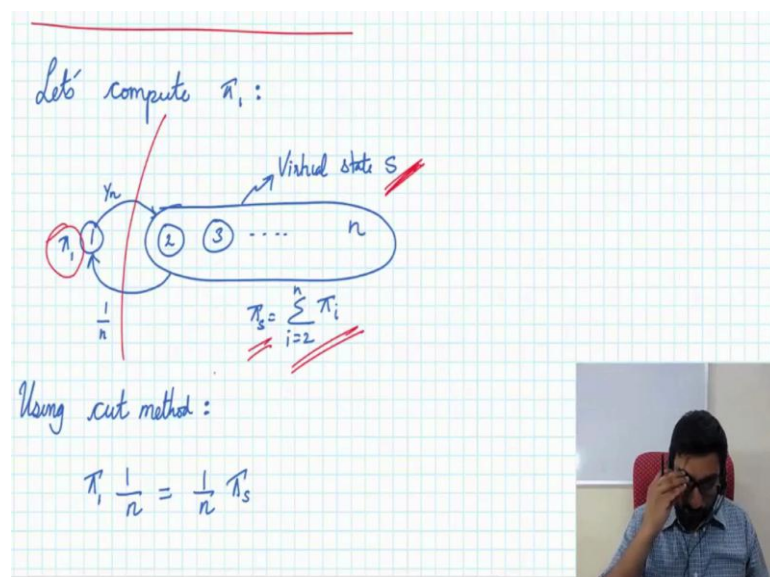 Let's compute π₁ :
Virtual state S
1/n
π₁ 1 2 3 .... n
1/n
πₛ = Σ_{i=2}^{n} πᵢ
Using cut method :
π₁ 1/n = 1/n πₛ